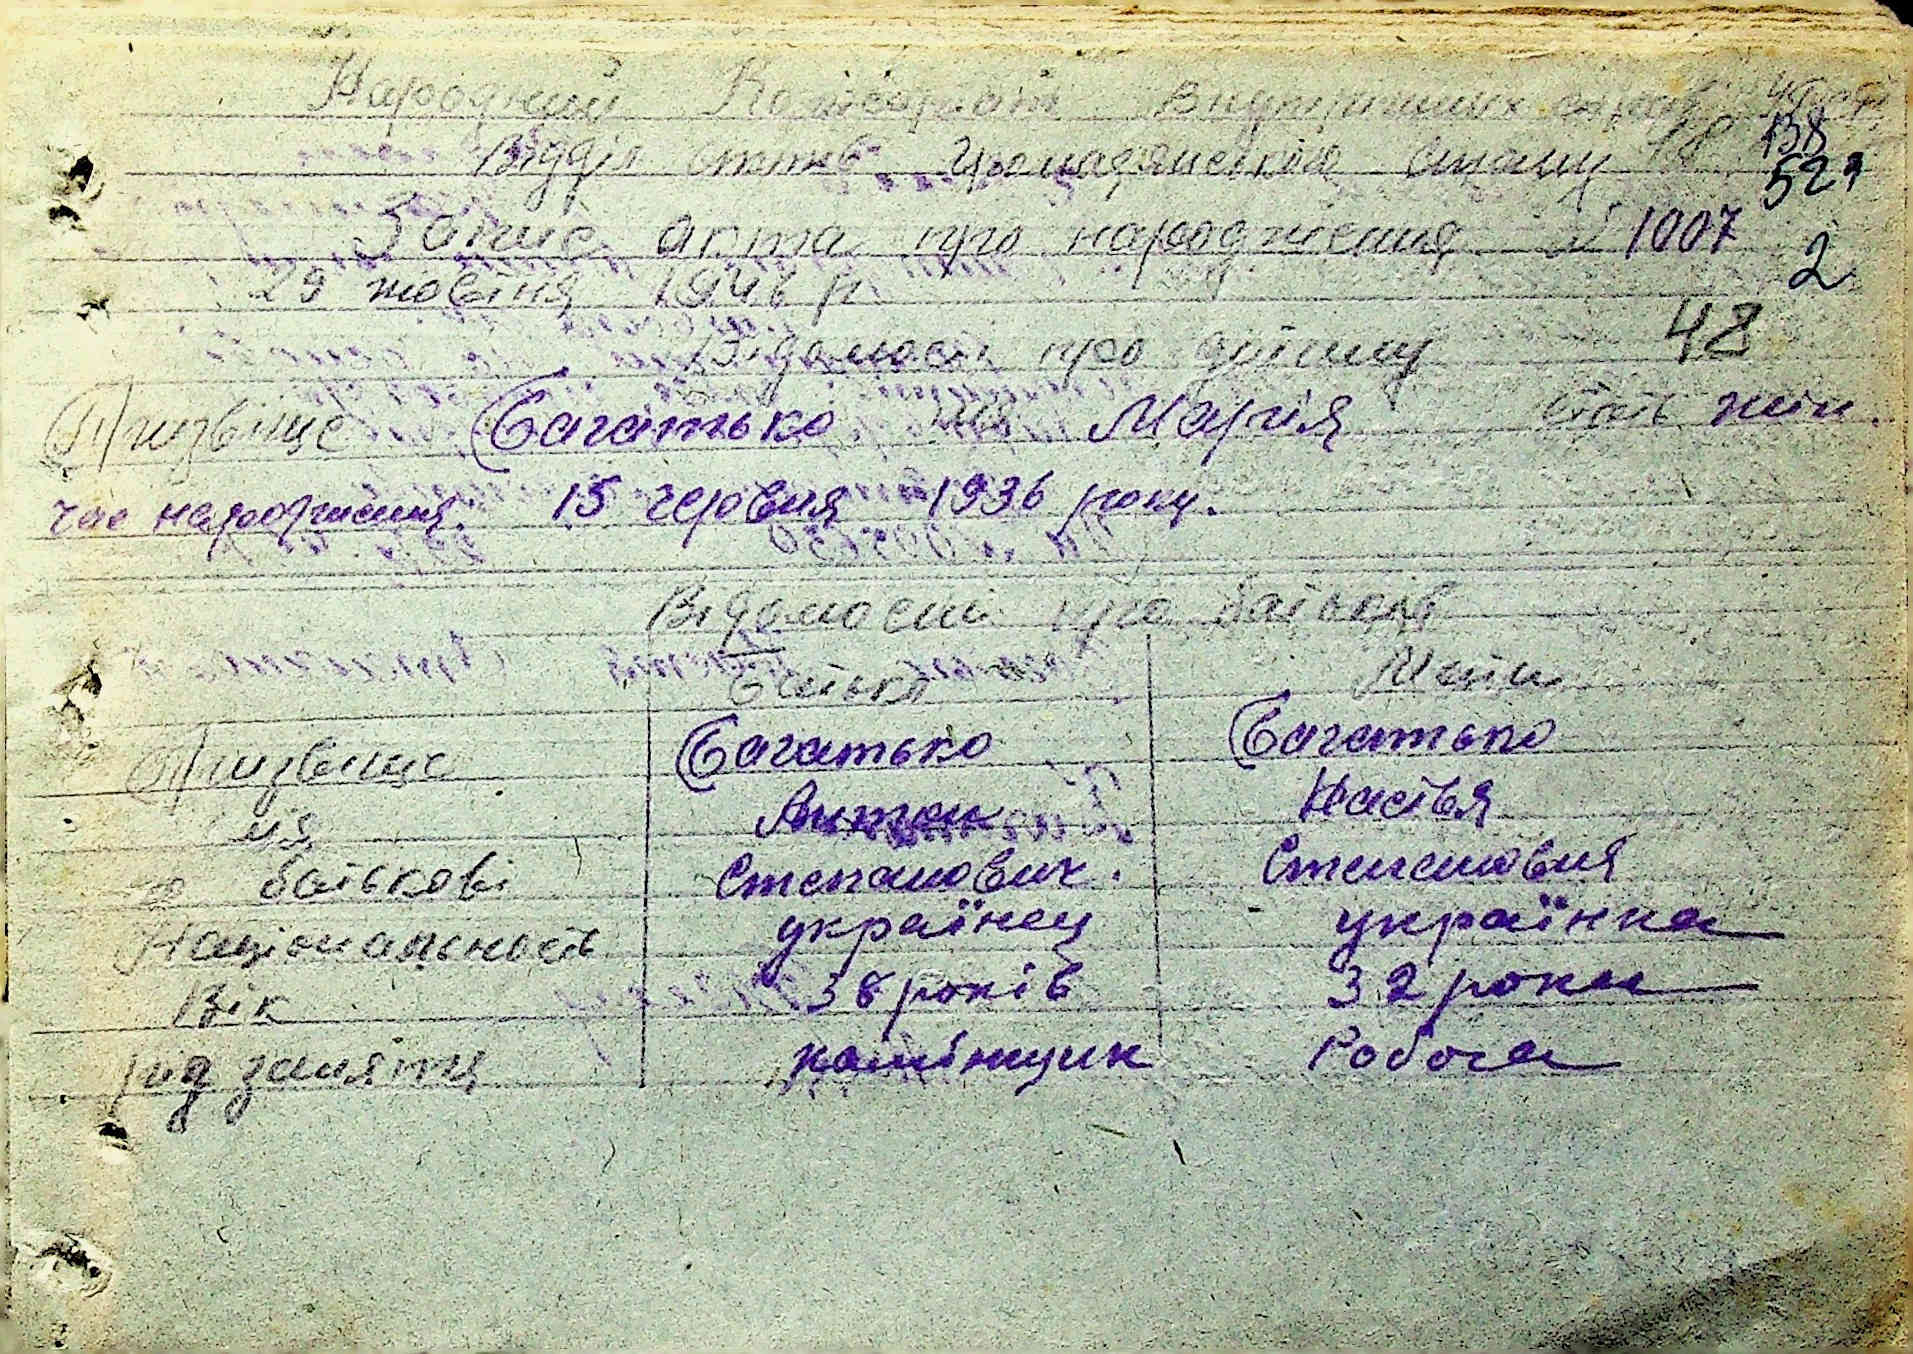 Народний Комісаріат Внутрішніх справ
138
Відділ актів громадянського стану 18
529
Запис акта про народження № 1007
2
29 жовтня 1946 р.
48
Відомості про дитину
Призвіще Багатько ім'я Марія стать жін.
час народження. 15 червня 1936 року.
Відомості про батьків
Батько Мати
Призвіще Багатько Багатько
ім'я Антон Настья
по батькові Степанович. Степановня
Національность українец українка
Вік 38 років 32 роки
рід заняття камінщик Робоча